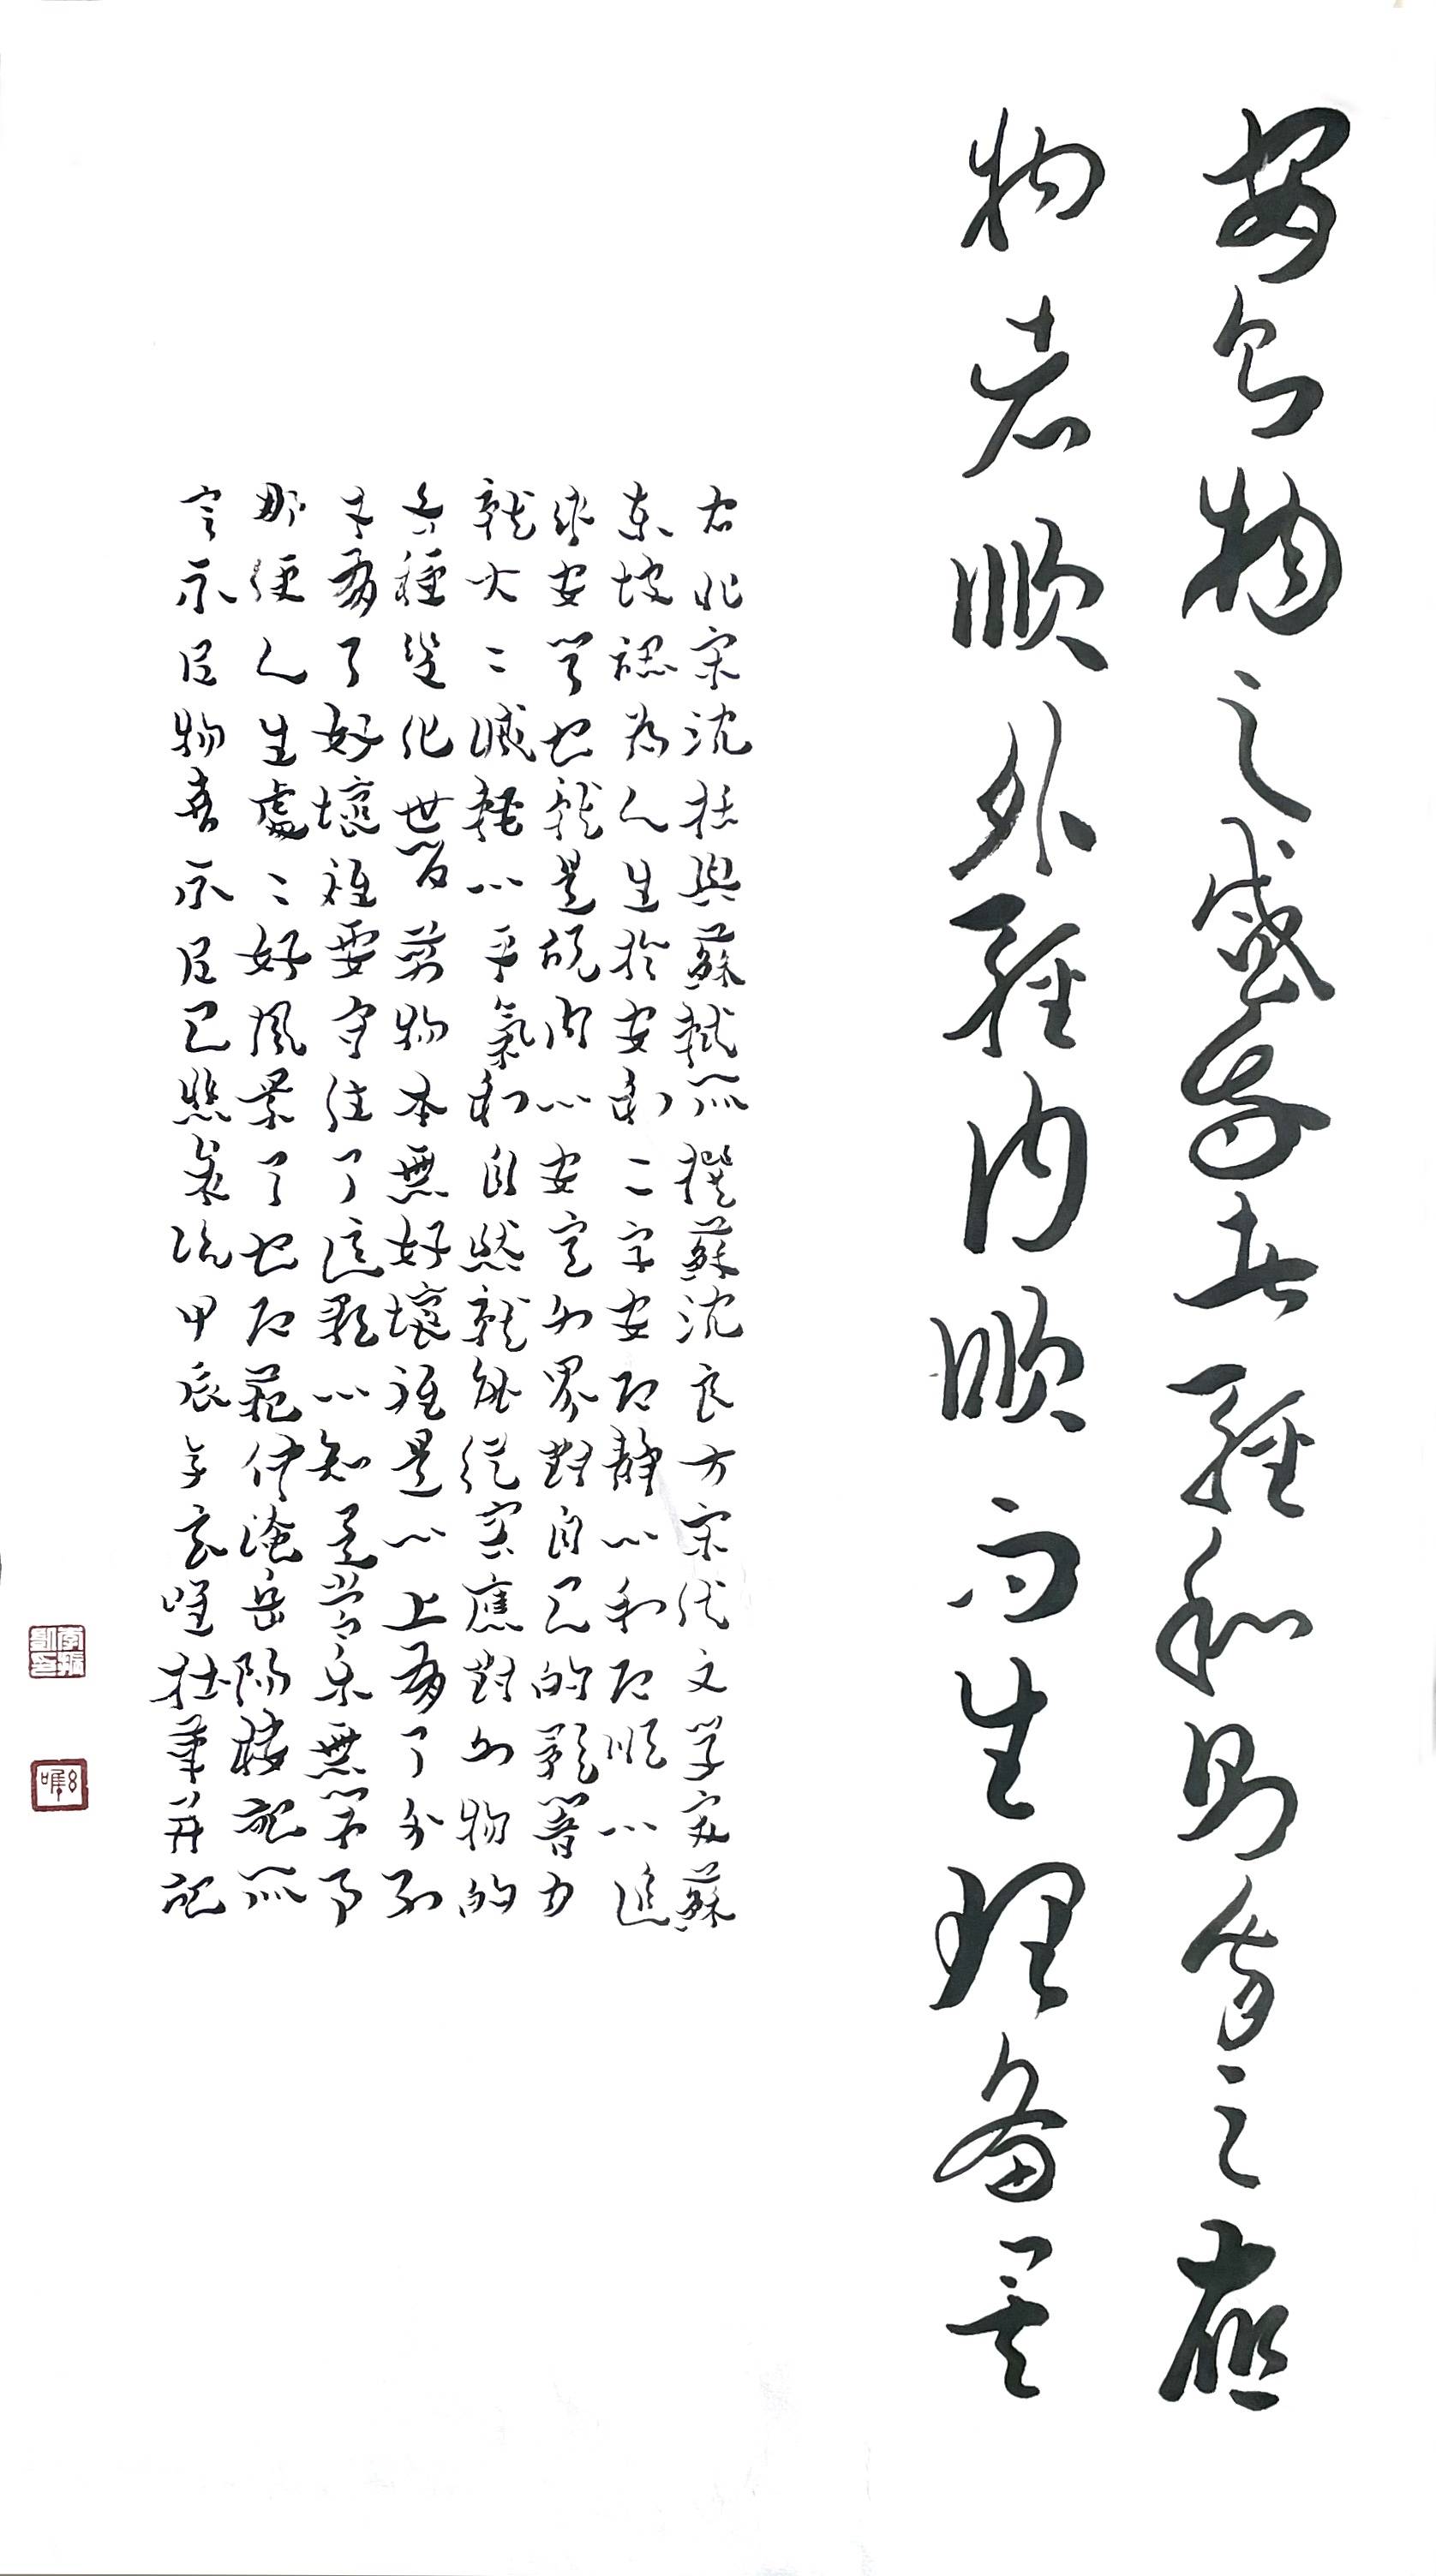 安則物之感我者輕和則我之應
物者順外輕內順而生理備矣
右北宋沈括與蘇軾所撰蘇沈良方宋代文學家蘇
東坡認為人生於安和二字安即靜心和即順心追
求安寧也就是說內心安定外界對自己的影響力
就大二減輕心平氣和自然就能從容應對外物的
各種變化世間萬物本無好壞祗是心上有了分別
才有了好壞祗要守住了這顆心知足常樂無閑事
那便人生處二好風景了也即范仲淹岳陽樓記所
言不以物喜不以己悲矣 甲辰 并記